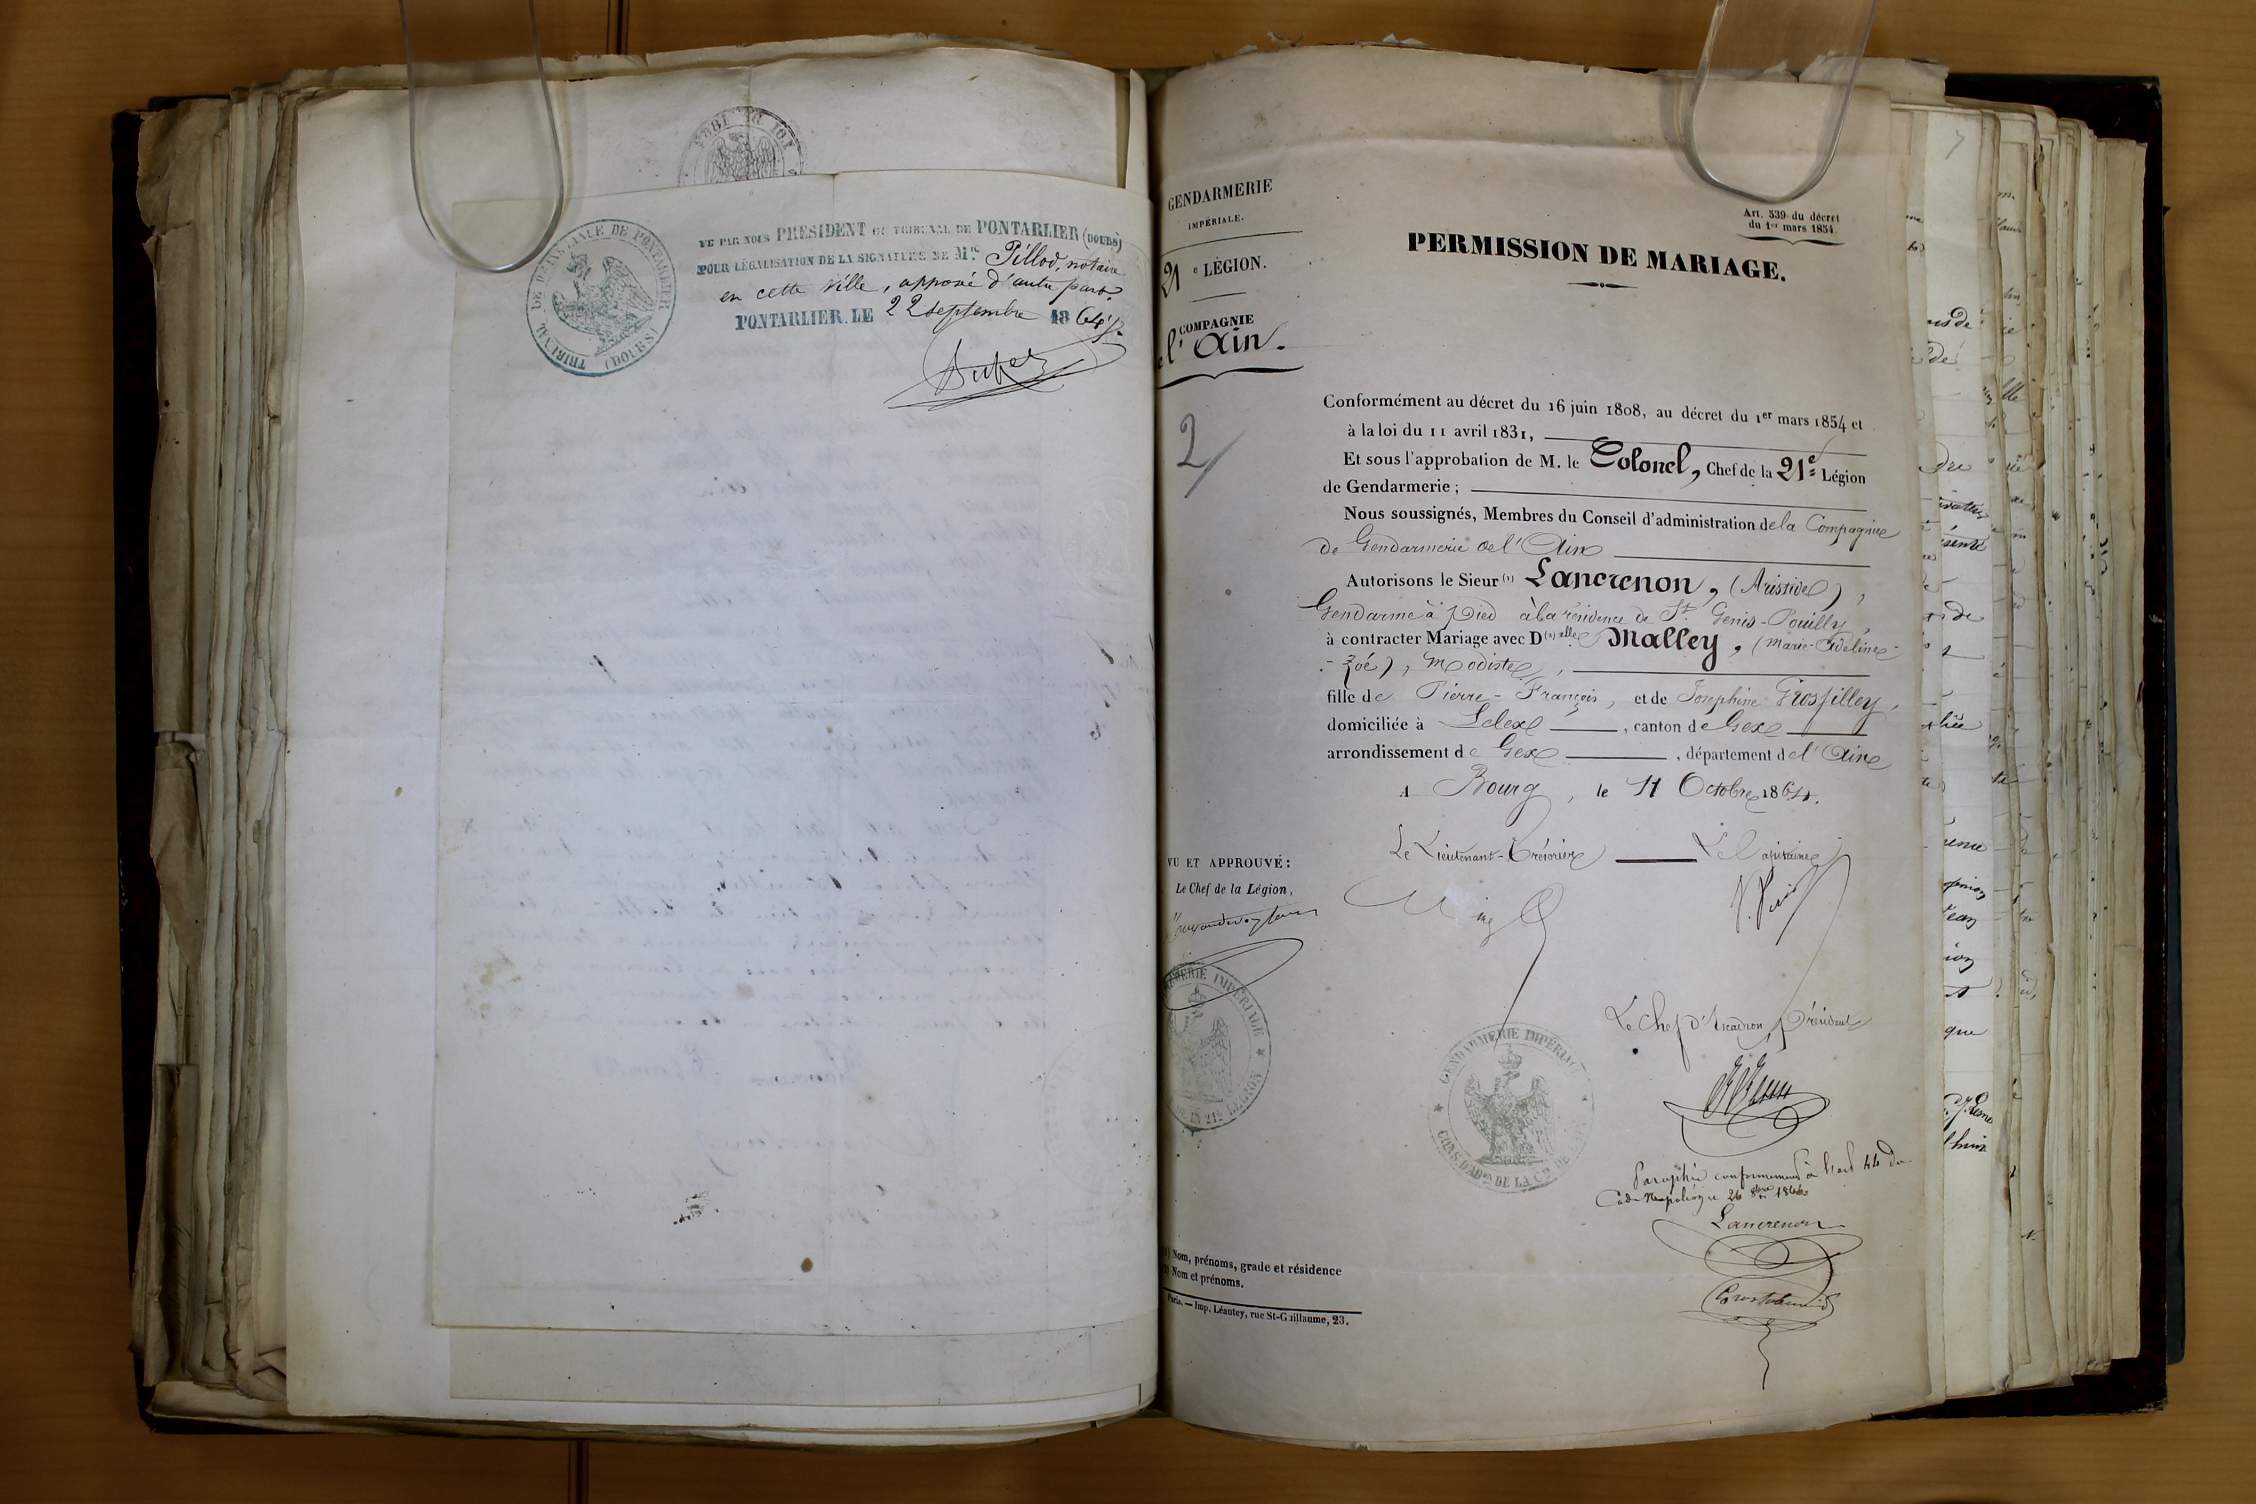 TRIBUNAL DE Dre INSTANCE DE PONTARLIER (DOUBS)
VU PAR NOUS PRESIDENT DU TRIBUNAL DE PONTARLIER (DOUBS)
POUR LÉGALISATION DE LA SIGNATURE DE Mr. Pillod, notaire
en cette ville, apposée d'autre part.
PONTARLIER, LE 22 septembre 1864
GENDARMERIE
IMPÉRIALE.
21e LÉGION.
COMPAGNIE
l'Ain.
2
Art. 539 du décret
du 1er mars 1854.
PERMISSION DE MARIAGE.
Conformément au décret du 16 juin 1808, au décret du 1er mars 1854 et
à la loi du 11 avril 1831,
Et sous l'approbation de M. le Colonel, Chef de la 21e Légion
de Gendarmerie ;
Nous soussignés, Membres du Conseil d'administration de la Compagnie
de Gendarmerie de l'Ain
Autorisons le Sieur (1) Lancrenon, (Aristide),
Gendarme à Pied à la résidence de St. Genis-Pouilly,
à contracter Mariage avec D(2)elle Malley, (Marie-Adeline-
-Zoé), Modiste,
fille de Pierre-François, et de Josephine Grosfilley,
domiciliée à Lelex, canton de Gex
arrondissement de Gex, département de l'Ain
A Bourg, le 11 Octobre 1864.
Le Lieutenant-Trésorier Le Capitaine
VU ET APPROUVÉ:
Le Chef de la Légion,
GENDARMERIE IMPÉRIALE
DE LA 21e LÉGION
Le Chef d'Escadron, Président
GENDARMERIE IMPÉRIALE
CONS. D'ADon DE LA Cie DE L'AIN
Paraphé conformément à l'art 44 du
Code Napoléon le 26 8bre 1864
Lancrenon
(1) Nom, prénoms, grade et résidence
(2) Nom et prénoms.
Paris. — Imp. Léautey, rue St-Guillaume, 23.